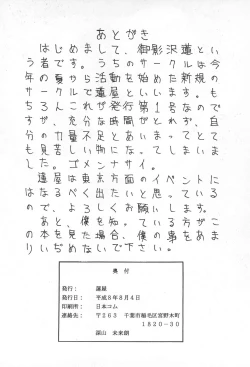 あとがき
はじめまして、御影沢蓮とい
う者です。うちのサークルは今
年の夏から活動を始めた新規の
サークルで蓮屋といいます。も
ちろんこれが発行第1号なので
すが、充分な時間がとれず、自
分の力量不足とあいまってとて
も見苦しい物になってしまいま
した。ゴメンナサイ。
蓮屋は東京方面のイベントに
はなるべく出たいと思っている
ので、よろしくお願いします。
あと、僕を知っている方がこ
の本を見た場合、僕の事をあま
りいぢめないで下さい。
奥 付
発行: 蓮屋
発行日: 平成8年8月4日
印刷所: 日本コム
連絡先: 〒263 千葉市稲毛区宮野木町
1820-30
深山 未来朗